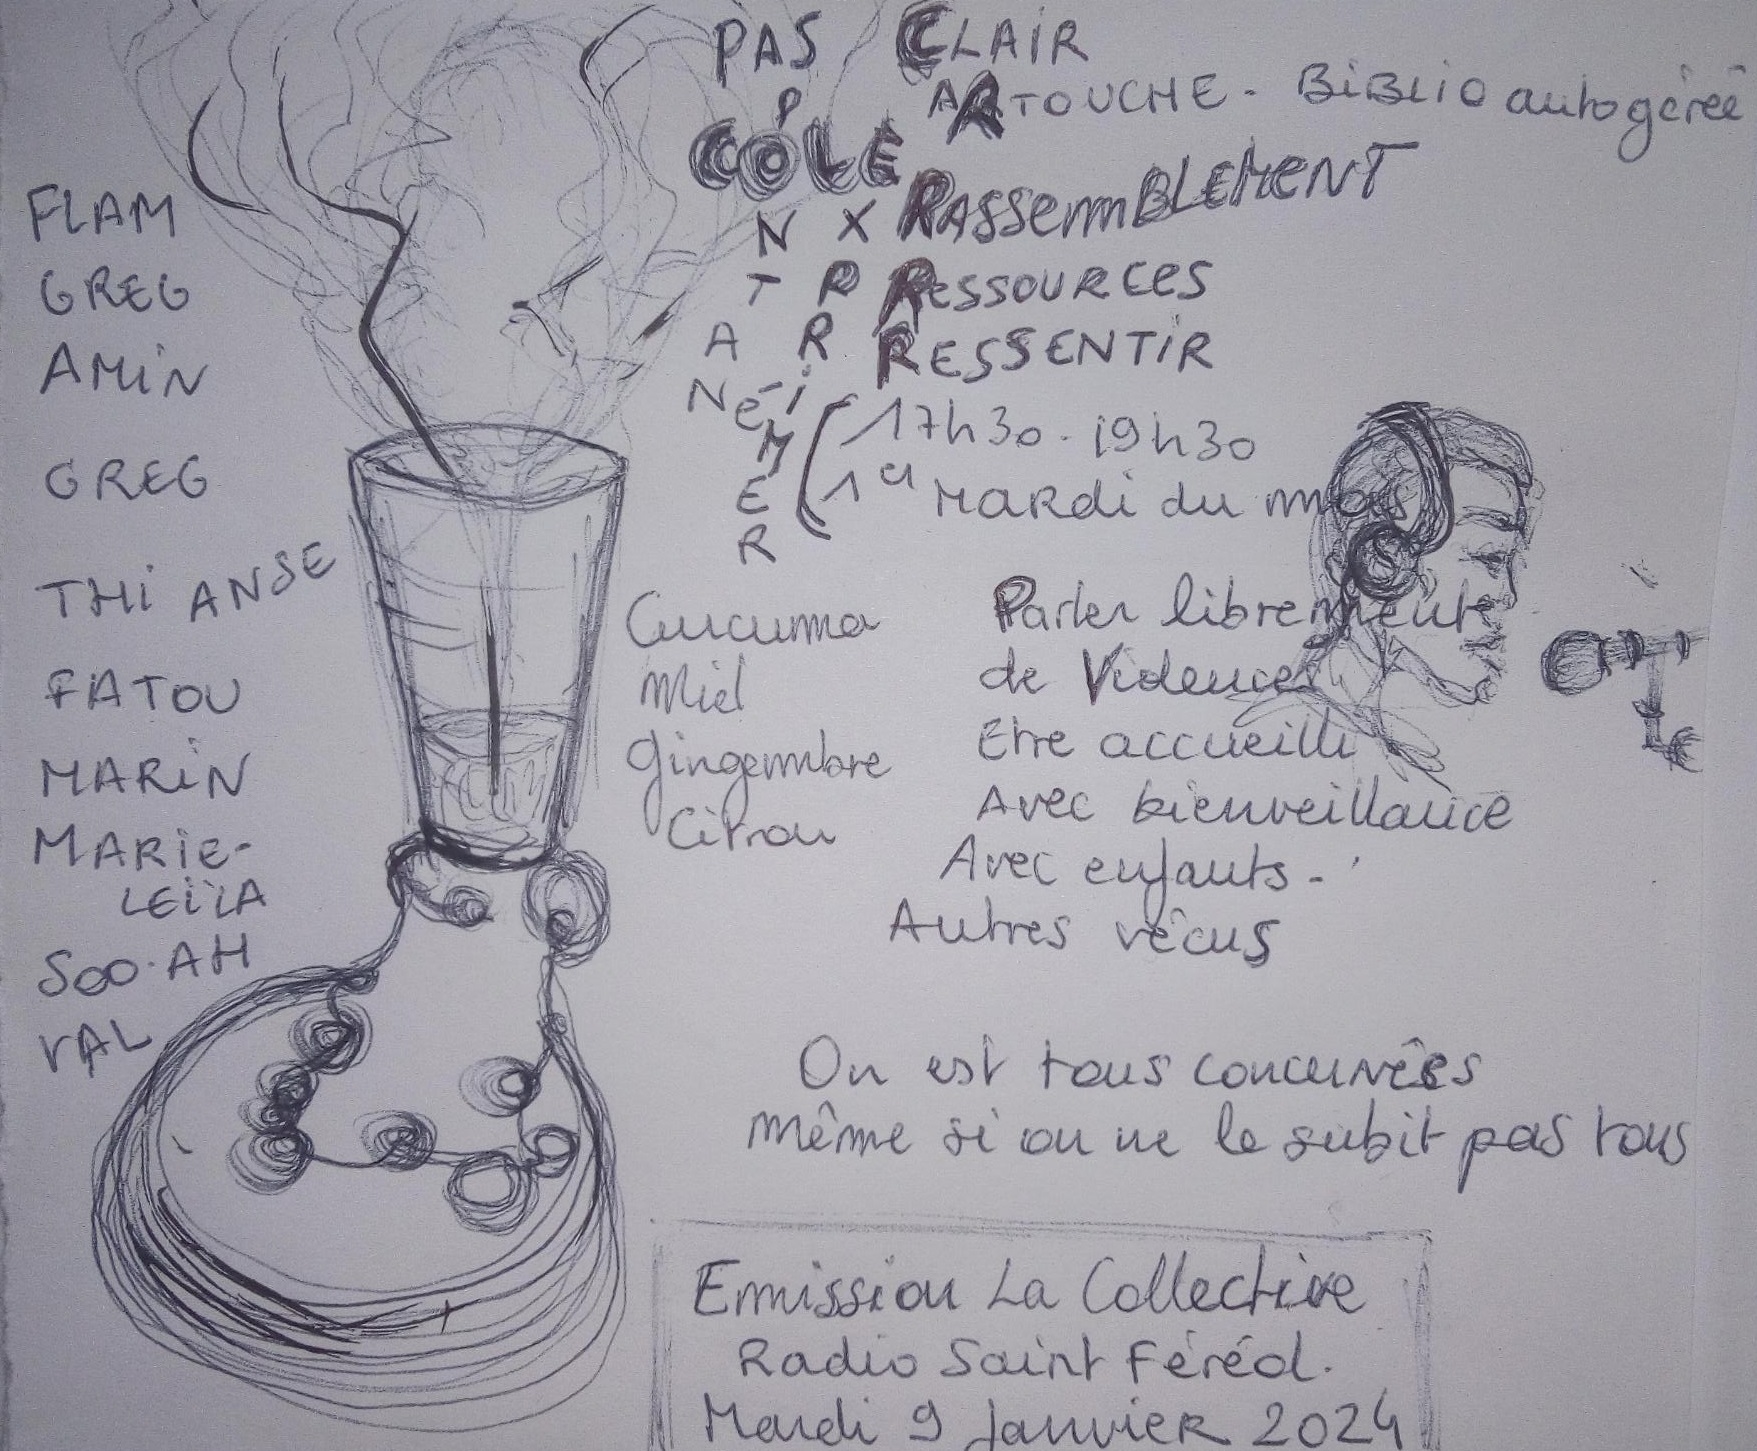 FLAM
GREG
AMiN
GREG
THi ANSE
FATOU
MARiN
MARiE-
LEïLA
SOO-AH
VAL
PAS CLAiR
P ARTOUCHE - BiBLiO autogérée
COLÈ
N X RASSemmBLEMENT
T R RESSOURCES
A R RESSENTiR
N É i
M
E
R
17h30 - 19h30
1er MARdi du mois
Curcuma
Miel
gingembre
Citron
Parler librement
de Violences
Etre accueilli
Avec bienveillance
Avec enfants -
Autres vécus
On est tous concernéEs
même si on ne le subit pas tous
Emission La Collective
Radio Saint Féréol.
Mardi 9 JanviER 2024